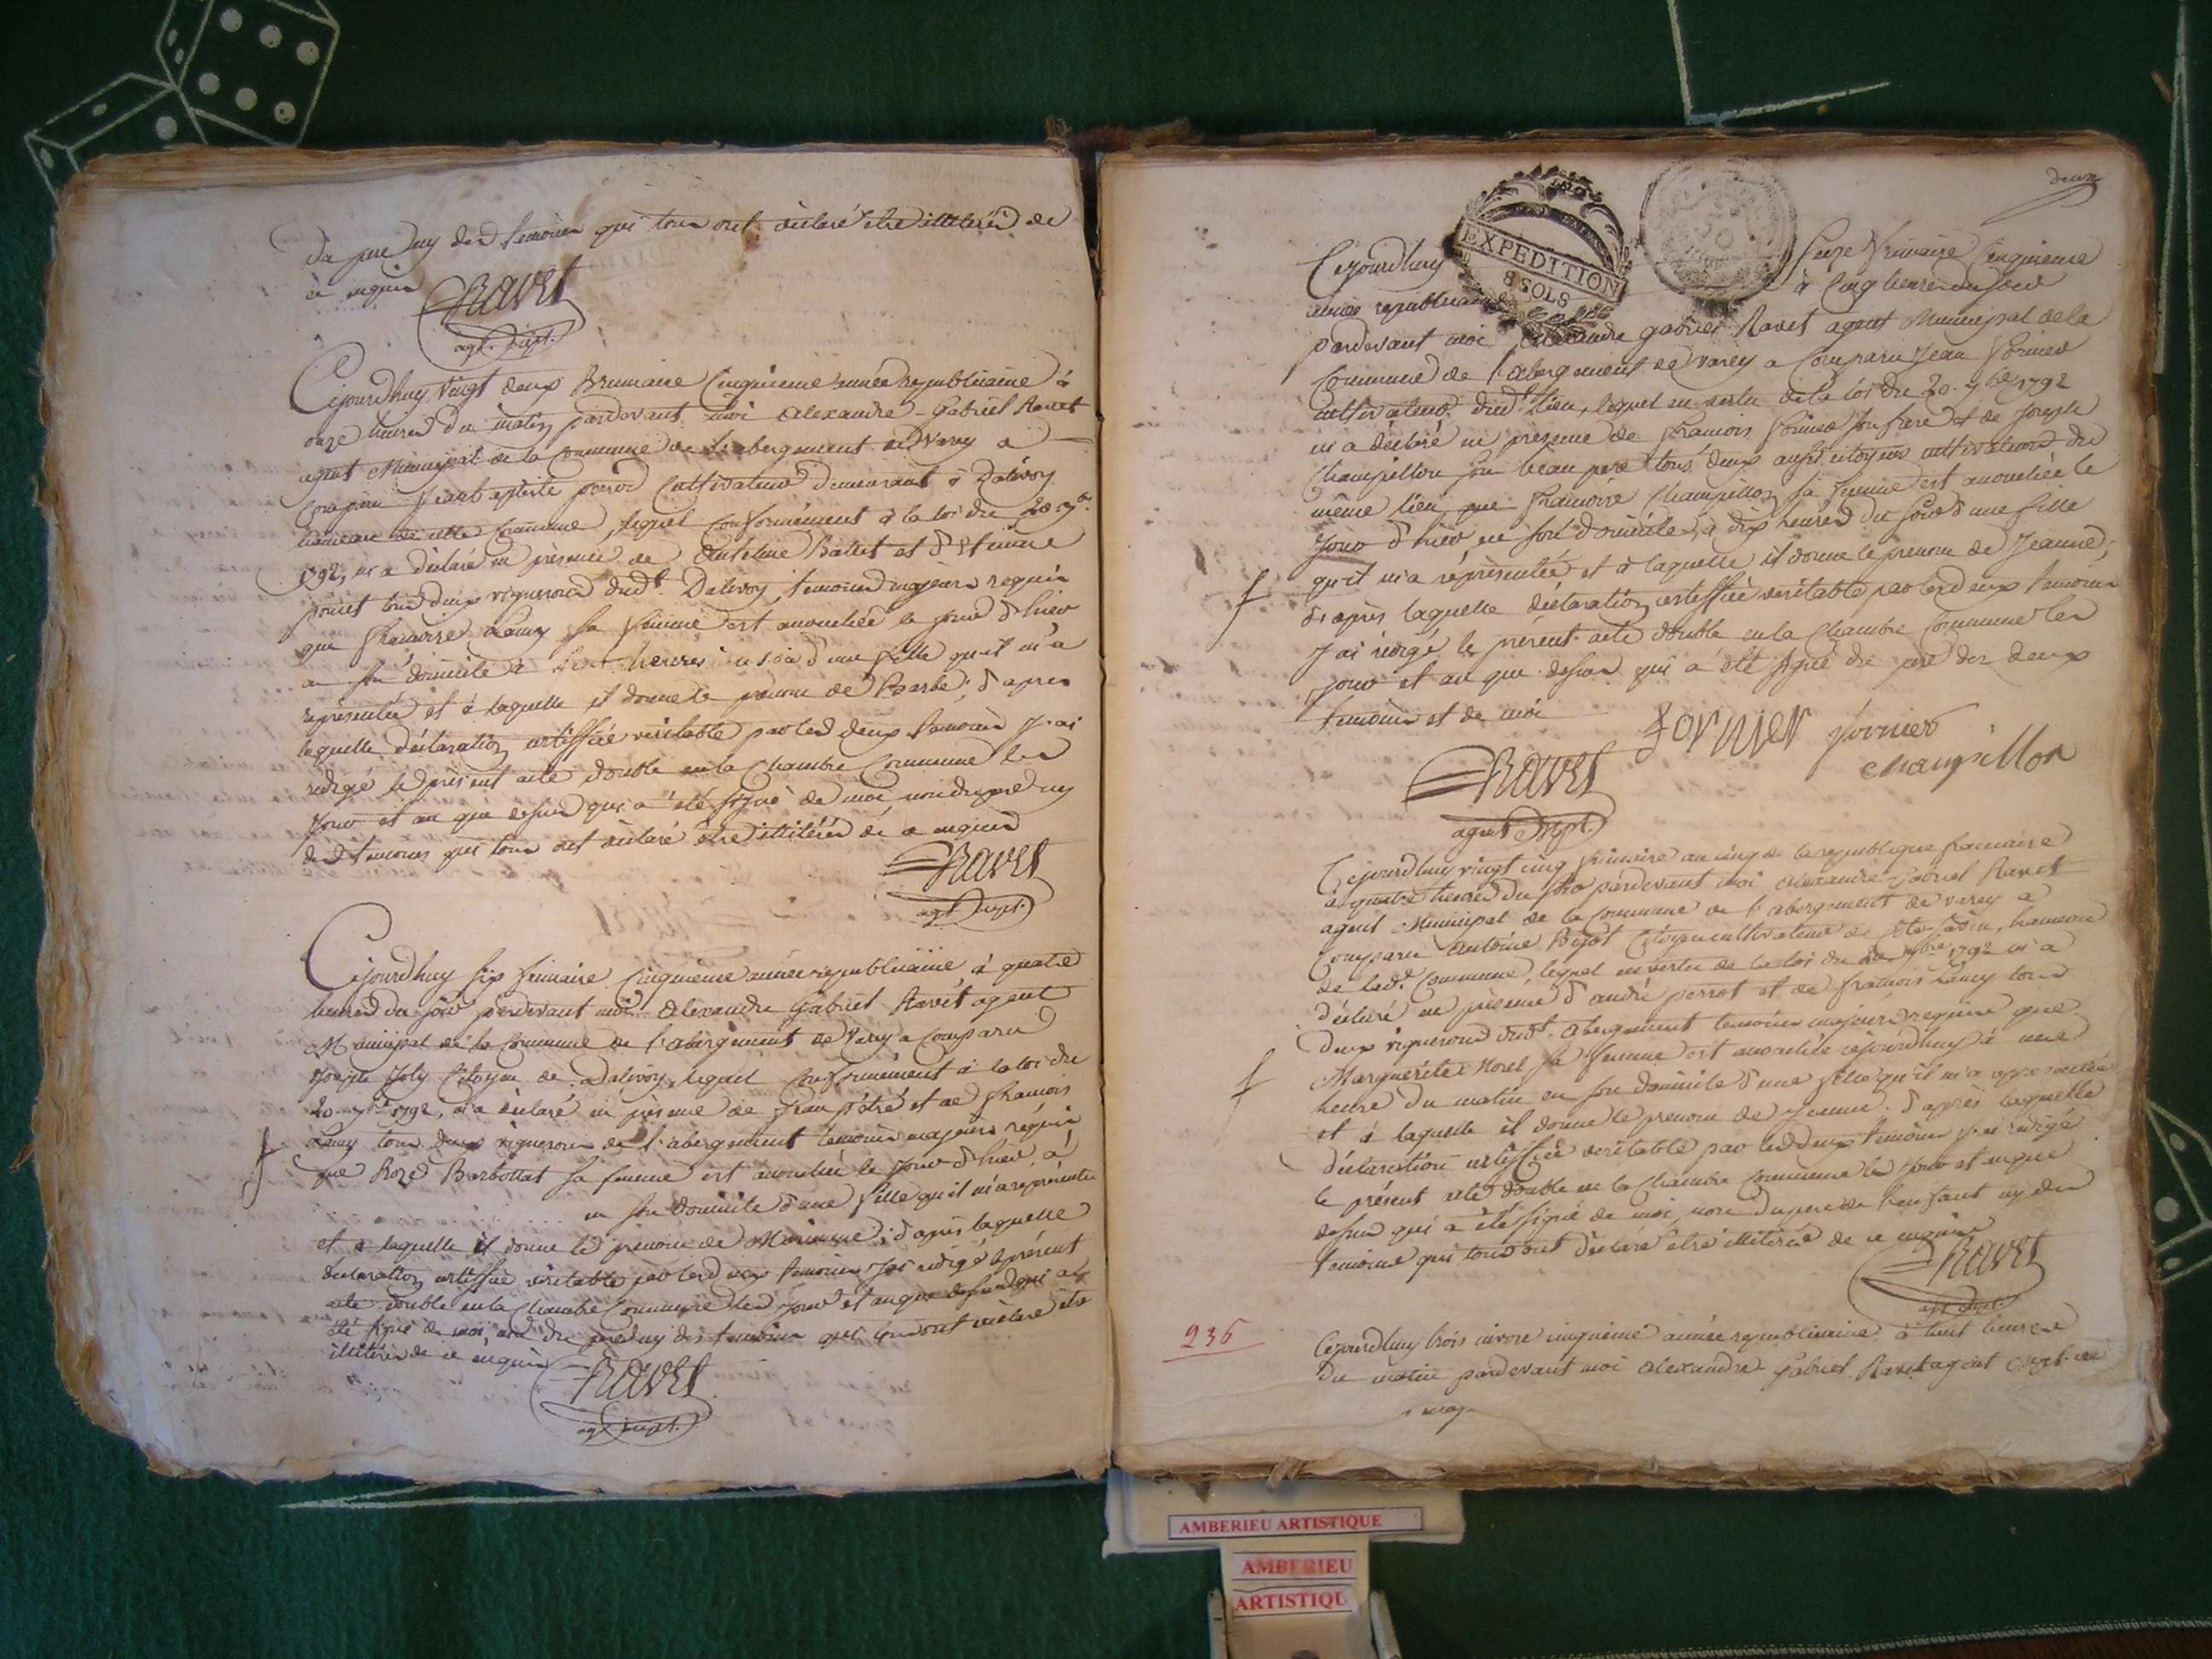 du pere ny des temoins qui tous ont déclaré etre illitérés de
ce enquis
Ravet
agt. mpl.
Cejourdhuy vingt deux Brumaire Cinquieme année republicaine à
onze heures du matin pardevant moi Alexandre-Gabriel Ravet
agent Municipal de la Commune de L'abergement de Varey a
Comparu Jeanbaptiste Cultivateur demeurant à Dalivoy
hameau de cette Commune, lequel Conformément à la loi du 20 7bre
1792, m'a déclaré en présence de Anthelme Ballet et d'Etienne
tous deux vignerons dudt. Dalivoy, temoins majeurs requis
que francoise Lamy sa femme est accouchée le jour d'hier
en son domicile à heures du soir d'une fille qu'il m'a
représentée et à laquelle il donne le prenom de Barbe; d'apres
laquelle déclaration certiffiée véritable par les deux temoins J'ai
redigé le présent acte double en la Chambre Commune les
Jour et an que dessus qui a été signé de moi non du pere ny
des temoins qui tous ont déclaré être illitérés de ce enquis
Ravet
agt. mpl.
Cejourdhuy six frimaire Cinquieme année republicaine à quatre
heures du soir pardevant moi Alexandre Gabriel Ravet agent
Municipal de la Commune de l'abergement de Varey a Comparu
Joseph Joly Citoyen de Dalivoy, lequel Conformément à la loi du
20 7bre 1792, m'a déclaré en présence de Jean et de francois
Lamy tous deux vignerons de l'abergement temoins majeurs requis
que Roze Barbottat sa femme est accouchée le Jour d'hier à
en son domicile d'une fille qu'il m'a représentée
et à laquelle il donne le prenom de Marianne; d'après laquelle
declaration certiffiée véritable par les deux temoins j'ai redigé le présent
acte double en la Chambre Commune les Jour et an que dessus qui a
été signé de moi, non du pere ny des temoins qui tous ont déclaré etre
illitérés de ce enquis
Ravet
agt mpl.
deux
EXPEDITION
8 SOLS
Cejourdhuy seize frimaire Cinquieme
année republicaine à Cinq heures du soir
pardevant moi Alexandre gabriel Ravet agent Municipal de la
Commune de l'abergement de varey a Comparu Jean fornier
cultivateur dudt. lieu, lequel en vertu de la loi du 20. 7bre 1792
m'a déclaré en présence de francois fornier son frere et de Joseph
Champillon son beau pere tous deux aussi citoyens cultivateurs du
même lieu, que francoise Champillon sa femme est accouchée le
Jour d'hier en son domicile, à dix heures du soir d'une fille
qu'il m'a représentée et à laquelle il donne le prenom de Jeanne;
d'après laquelle déclaration certiffiée véritable par les deux temoins
J'ai rédigé le présent acte double en la Chambre Commune les
jour et an que dessus qui a été signé du pere des deux
temoins et de moi
fornier fornier
champillon
Ravet
agent mpl.
Cejourdhuy vingt cinq frimaire an cinq de la republique francaise
à quatre heures du soir pardevant moi Alexandre-Gabriel Ravet
agent Municipal de la Commune de l'abergement de varey a
Comparu Antoine Bigot Citoyen cultivateur de hameau
de lade. Commune, lequel en vertu de la loi du 20 7bre 1792 m'a
déclaré en présence d'andré perrot et de francois Lamy tous
deux vignerons dudt. abergement temoins majeurs requis que
Marguerite Morel sa femme est accouchée cejourdhuy à une
heure du matin en son domicile d'une fille qu'il m'a représentée
et à laquelle il donne le prenom de Jeanne. d'après laquelle
déclaration certiffiée veritable par les deux temoins j'ai redigé
le présent acte double en la Chambre Commune les jour et an que
dessus qui a été signé de moi, non du pere de l'enfant ny des
temoins qui tous ont déclaré etre illiterés de ce enquis
Ravet
agt mpl.
236
Cejourdhuy trois nivose cinquieme année republicaine à huit heures
du matin pardevant moi Alexandre Gabriel Ravet agent mpl. de
AMBERIEU ARTISTIQUE
AMBERIEU
ARTISTIQU